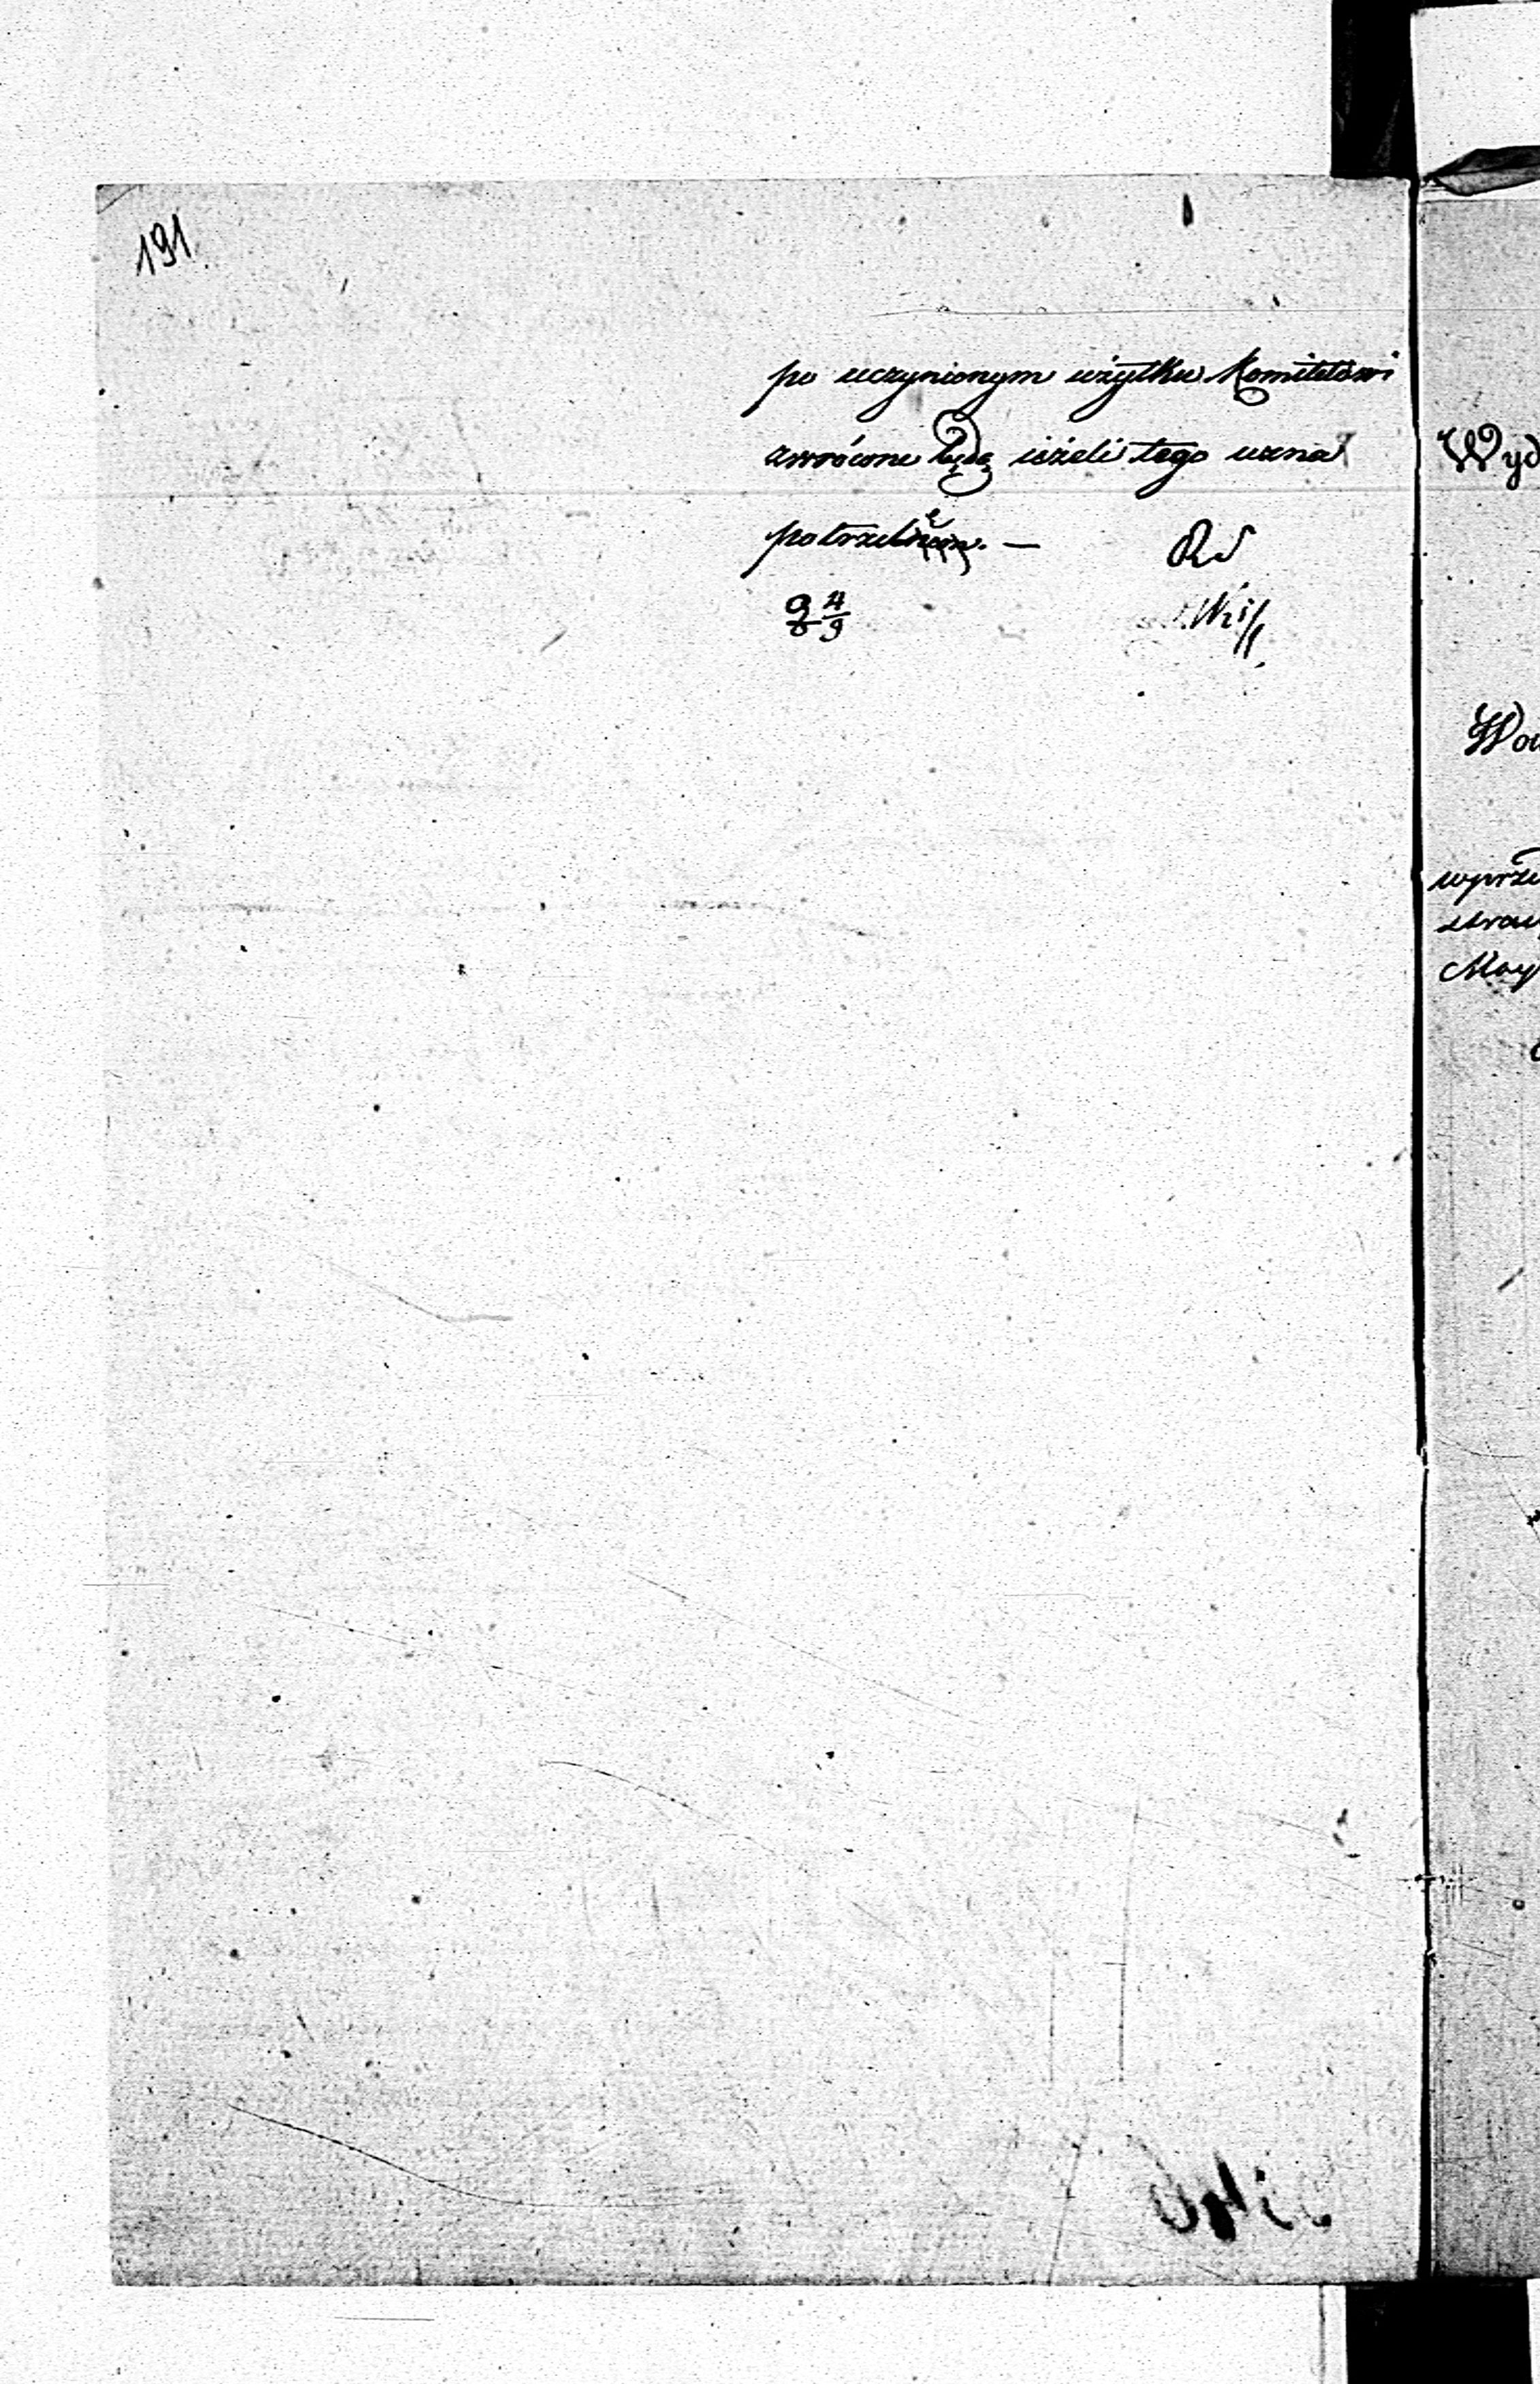 191
po uczynionym użytku Komitetowi
zwrócone będą ieżeli tego uzna
potrzebę. —
4/9
Wyd
Wo
wyrz
May